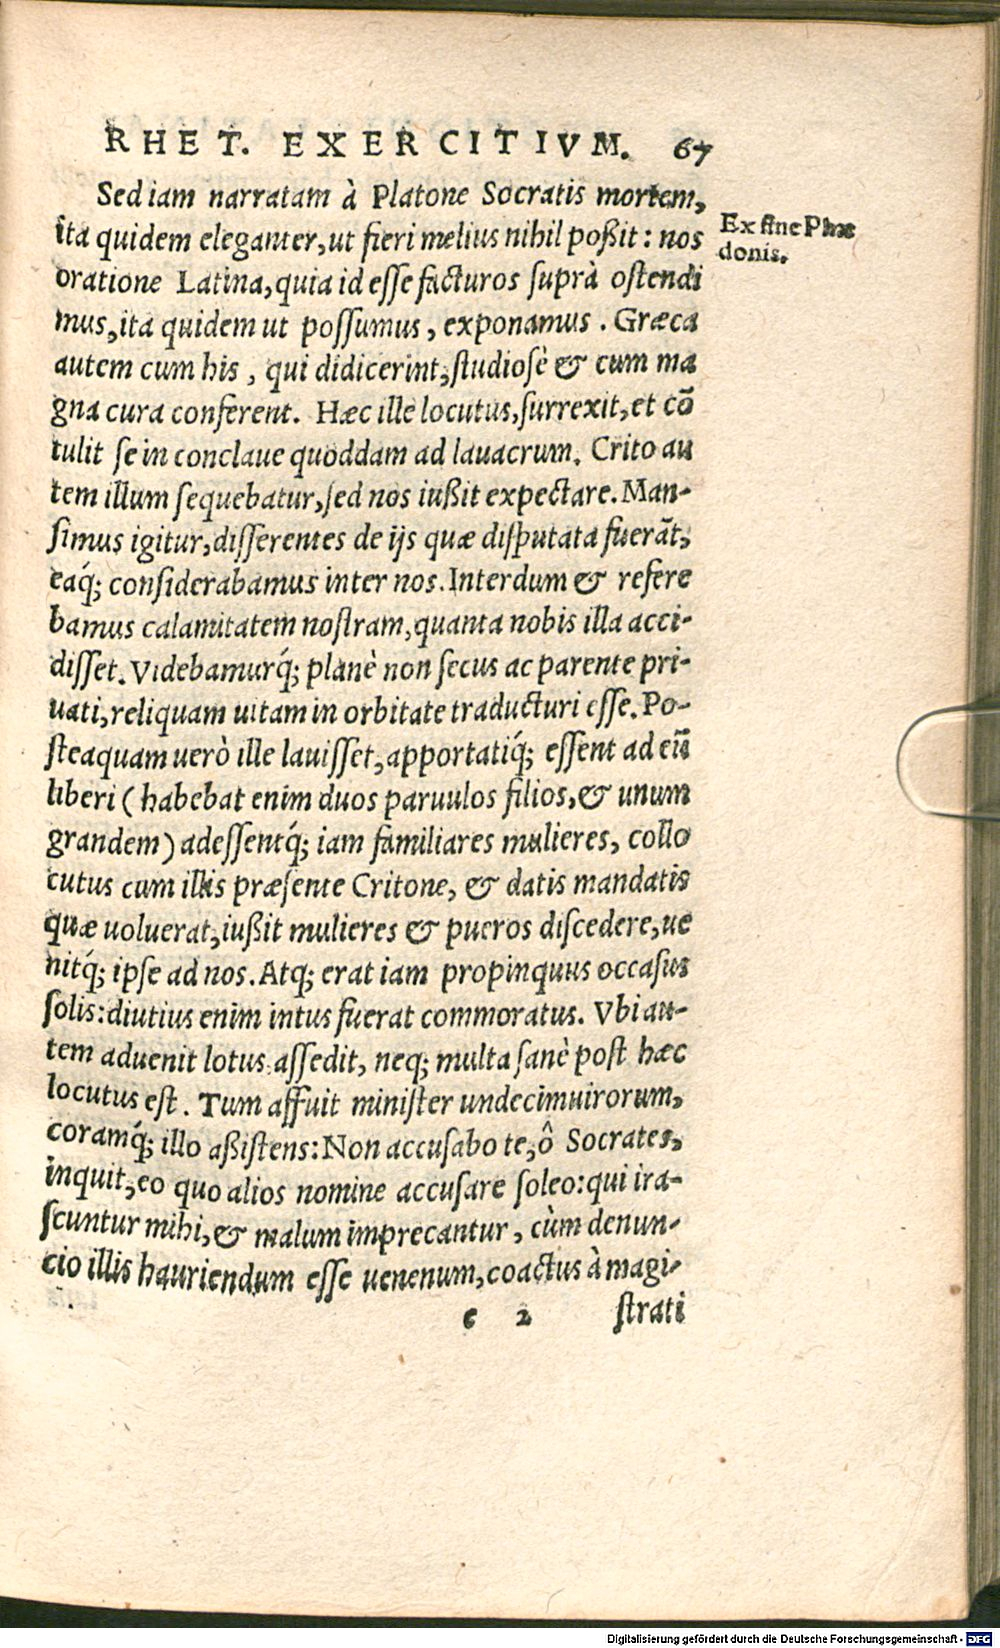 RHET. EXERCITIVM. 67
Sed iam narratam à Platone Socratis mortem,
ita quidem eleganter, ut fieri melius nihil poßit: nos
Ex fine Phæ
donis.
oratione Latina, quia id esse facturos suprà ostendi
mus, ita quidem ut possumus, exponamus. Græca
autem cum his, qui didicerint, studiosè & cum ma
gna cura conferent. Hæc ille locutus, surrexit, et cō
tulit se in conclaue quoddam ad lauacrum. Crito au
tem illum sequebatur, sed nos iußit expectare. Man-
simus igitur, disserentes de ijs quæ disputata fuerāt,
eaq́; considerabamus inter nos. Interdum & refere
bamus calamitatem nostram, quanta nobis illa acci-
disset. Videbamurq́; planè non secus ac parente pri-
uati, reliquam uitam in orbitate traducturi esse. Po-
steaquam uerò ille lauisset, apportatiq́; essent ad eū
liberi (habebat enim duos paruulos filios, & unum
grandem) adessentq́; iam familiares mulieres, collo
cutus cum illis præsente Critone, & datis mandatis
quæ uoluerat, iußit mulieres & pueros discedere, ue
nitq́; ipse ad nos. Atq; erat iam propinquus occasus
solis: diutius enim intus fuerat commoratus. Vbi au-
tem aduenit lotus assedit, neq; multa sanè post hæc
locutus est. Tum affuit minister undecimuirorum,
coramq́; illo aßistens: Non accusabo te, ô Socrates,
inquit, eo quo alios nomine accusare soleo: qui ira-
scuntur mihi, & malum imprecantur, cùm denun-
cio illis hauriendum esse uenenum, coactus à magi-
e 2 strati
Digitalisierung gefördert durch die Deutsche Forschungsgemeinschaft - DFG